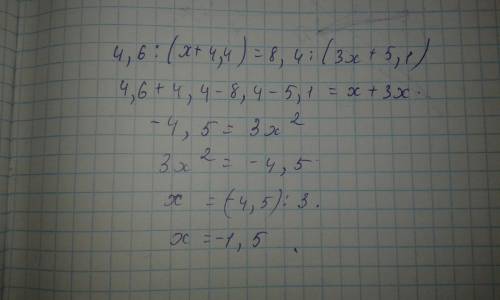 4,6:(x+4,4)=8,4:(3x+5,1)
4,6+4,4-8,4-5,1=x+3x.
-4,5=3x²
3x²=-4,5
x=(-4,5):3.
x=-1,5.